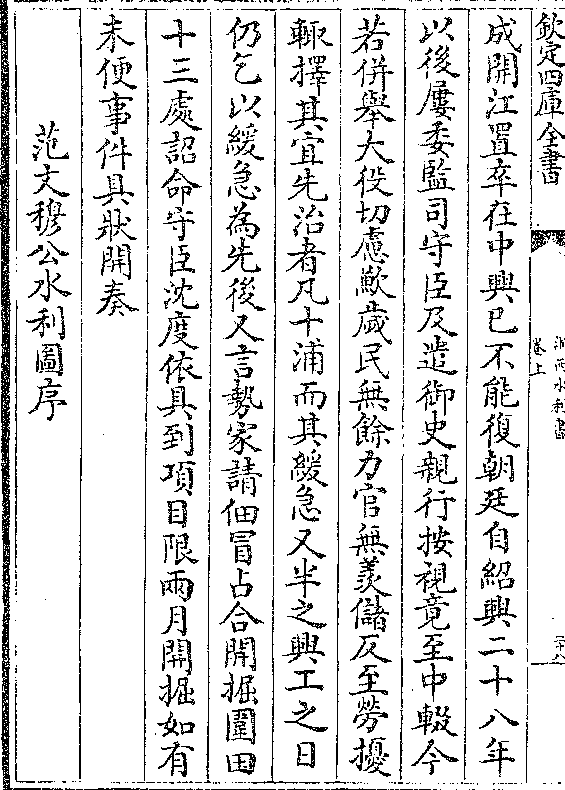 欽定四庫全書
浙西水利書
卷上
成開江置卒在中興已不能復朝廷自紹興二十八年
以後屢委監司守臣及遣御史親行按視竟至中輟今
若併舉大役切慮歉歲民無餘力官無羨儲反至勞擾
輙擇其宜先治者凡十浦而其緩急又半之興工之日
仍乞以緩急為先後又言勢家請佃冒占合開掘圍田
十三處詔命守臣沈度依具到項目限兩月開掘如有
未便事件具狀開奏
范文穆公水利圖序